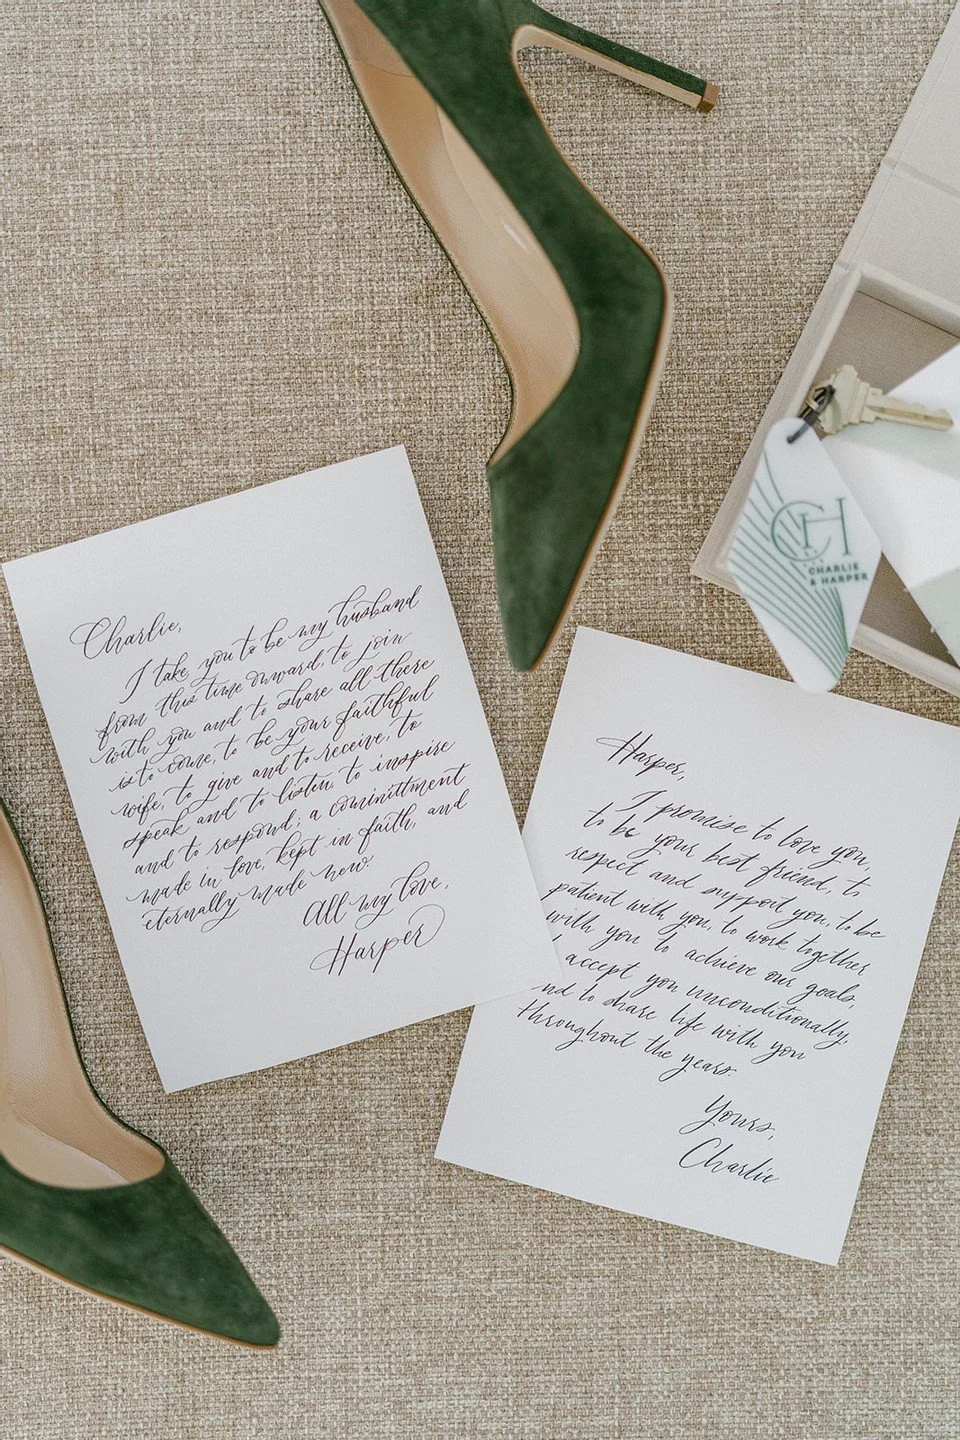 Charlie,
I take you to be my husband
from this time onward, to join
with you and to share all there
is to come, to be your faithful
wife, to give and to receive, to
speak and to listen, to inspire
and to respond; a committment
made in love, kept in faith, and
eternally made new.
All my love,
Harper
CH
CHARLIE
& HARPER
Harper,
I promise to love you,
to be your best friend, to
respect and support you, to be
patient with you, to work together
with you to achieve our goals,
accept you unconditionally,
nd to share life with you
throughout the years.
Yours,
Charlie